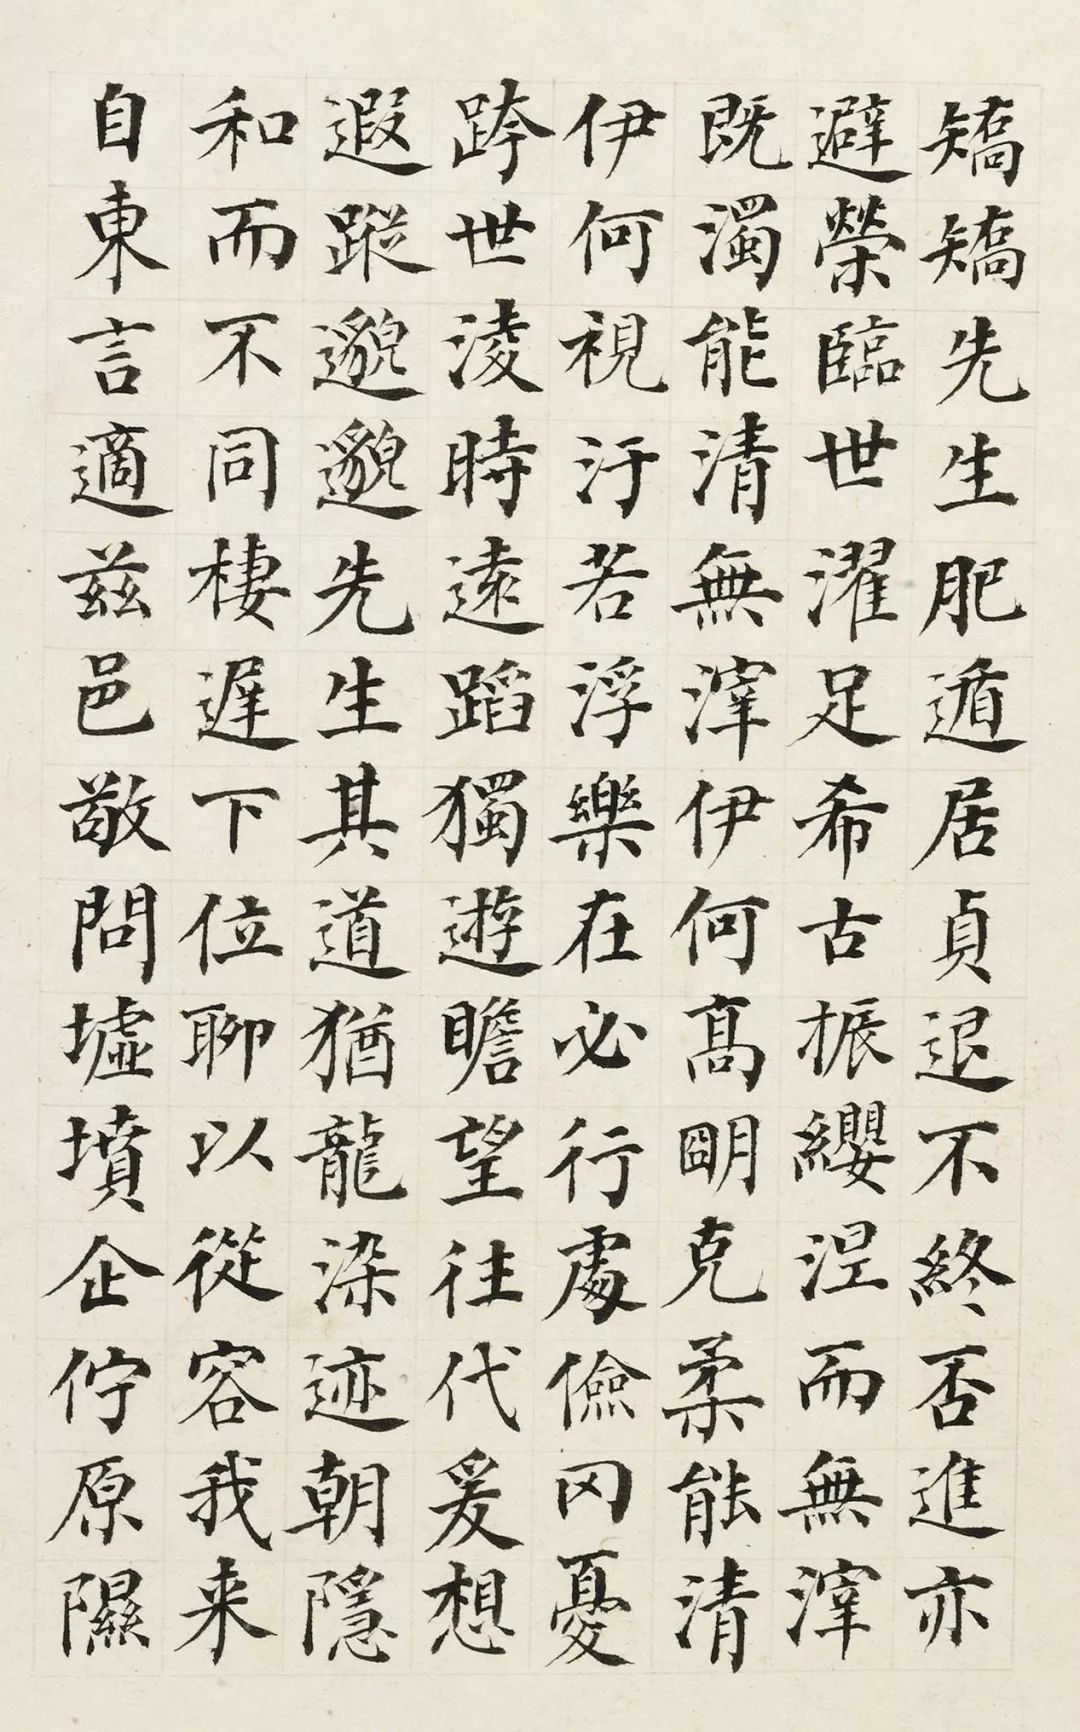 矯矯先生肥遁居貞退不終否進亦
避榮臨世濯足希古振纓涅而無滓
既濁能清無滓伊何高明克柔能清
伊何視汙若浮樂在必行處儉罔憂
跨世淩時遠蹈獨遊瞻望往代爰想
遐蹤邈邈先生其道猶龍染迹朝隱
和而不同棲遲下位聊以從容我来
自東言適茲邑敬問墟墳企佇原隰